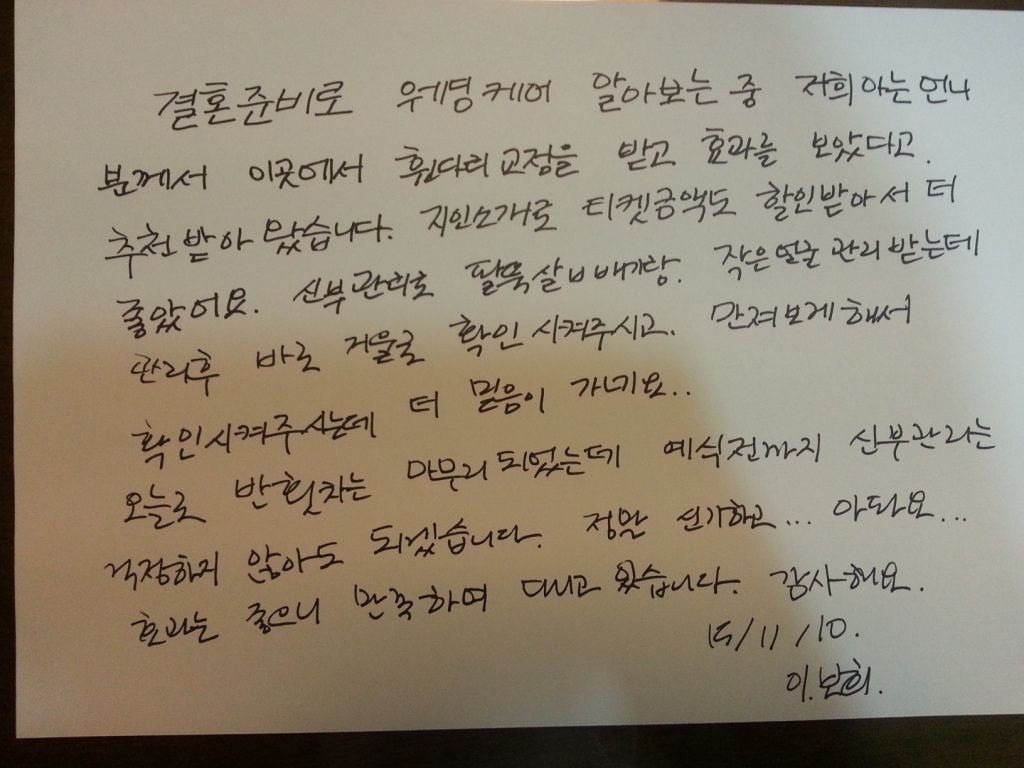 결혼준비로 웨딩케어 알아보는 중 저희 아는 언니
분께서 이곳에서 휜다리교정을 받고 효과를 보았다고.
추천받아 왔습니다. 지인소개로 티켓금액도 할인받아서 더
좋았어요. 신부관리로 팔뚝살 배랑. 작은얼굴관리받는데
관리후 바로 거울로 확인시켜주시고. 만져보게해서
확인시켜주시는데 더 믿음이 가네요..
오늘로 반회차는 마무리되었는데 예식전까지 신부관리는
걱정하지 않아도 되겠습니다. 정말 신기하고... 아파요...
효과는 좋으니 만족하며 다니고 있습니다. 감사해요.
15/11/10.
이.보희.